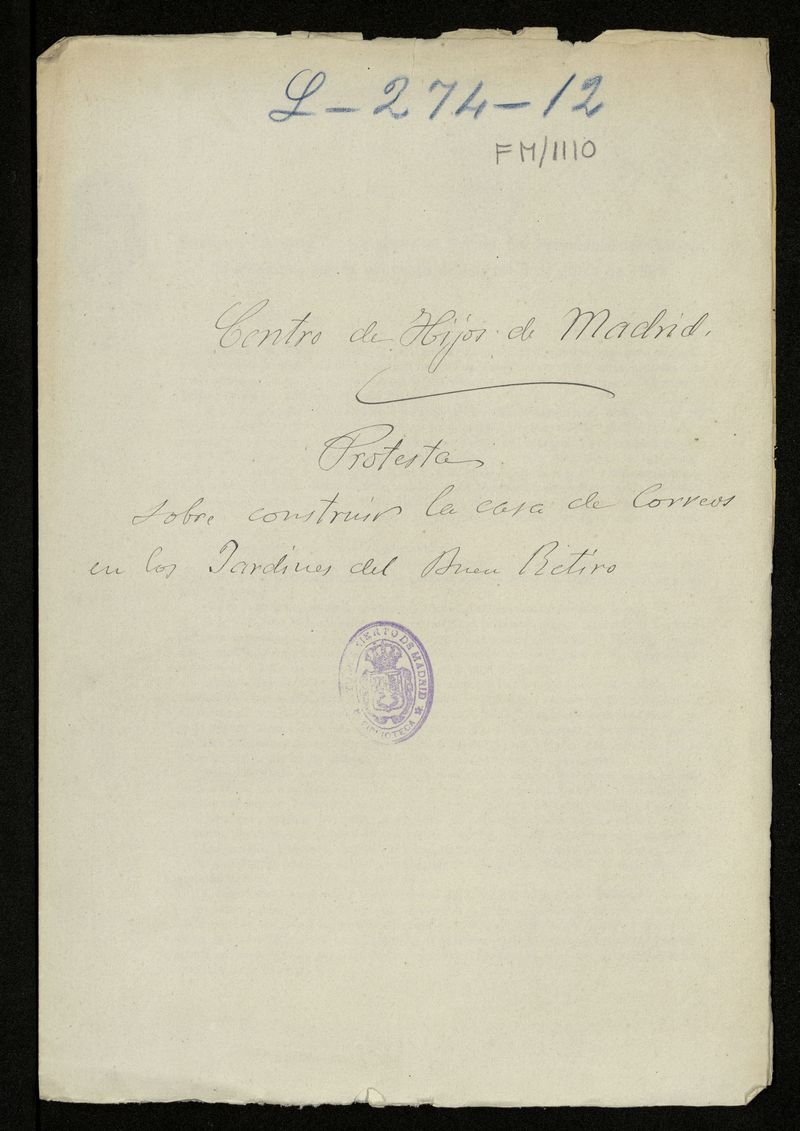 L-274-12
FM/1110
Centro de Hijos de Madrid.
Protesta
sobre construir la casa de Correos
en los Jardines del Buen Retiro
DE MADRID
BIBLIOTECA